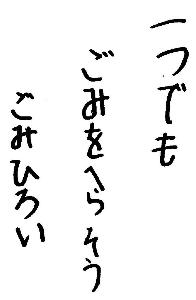 一つでも
ごみをへらそう
ごみひろい